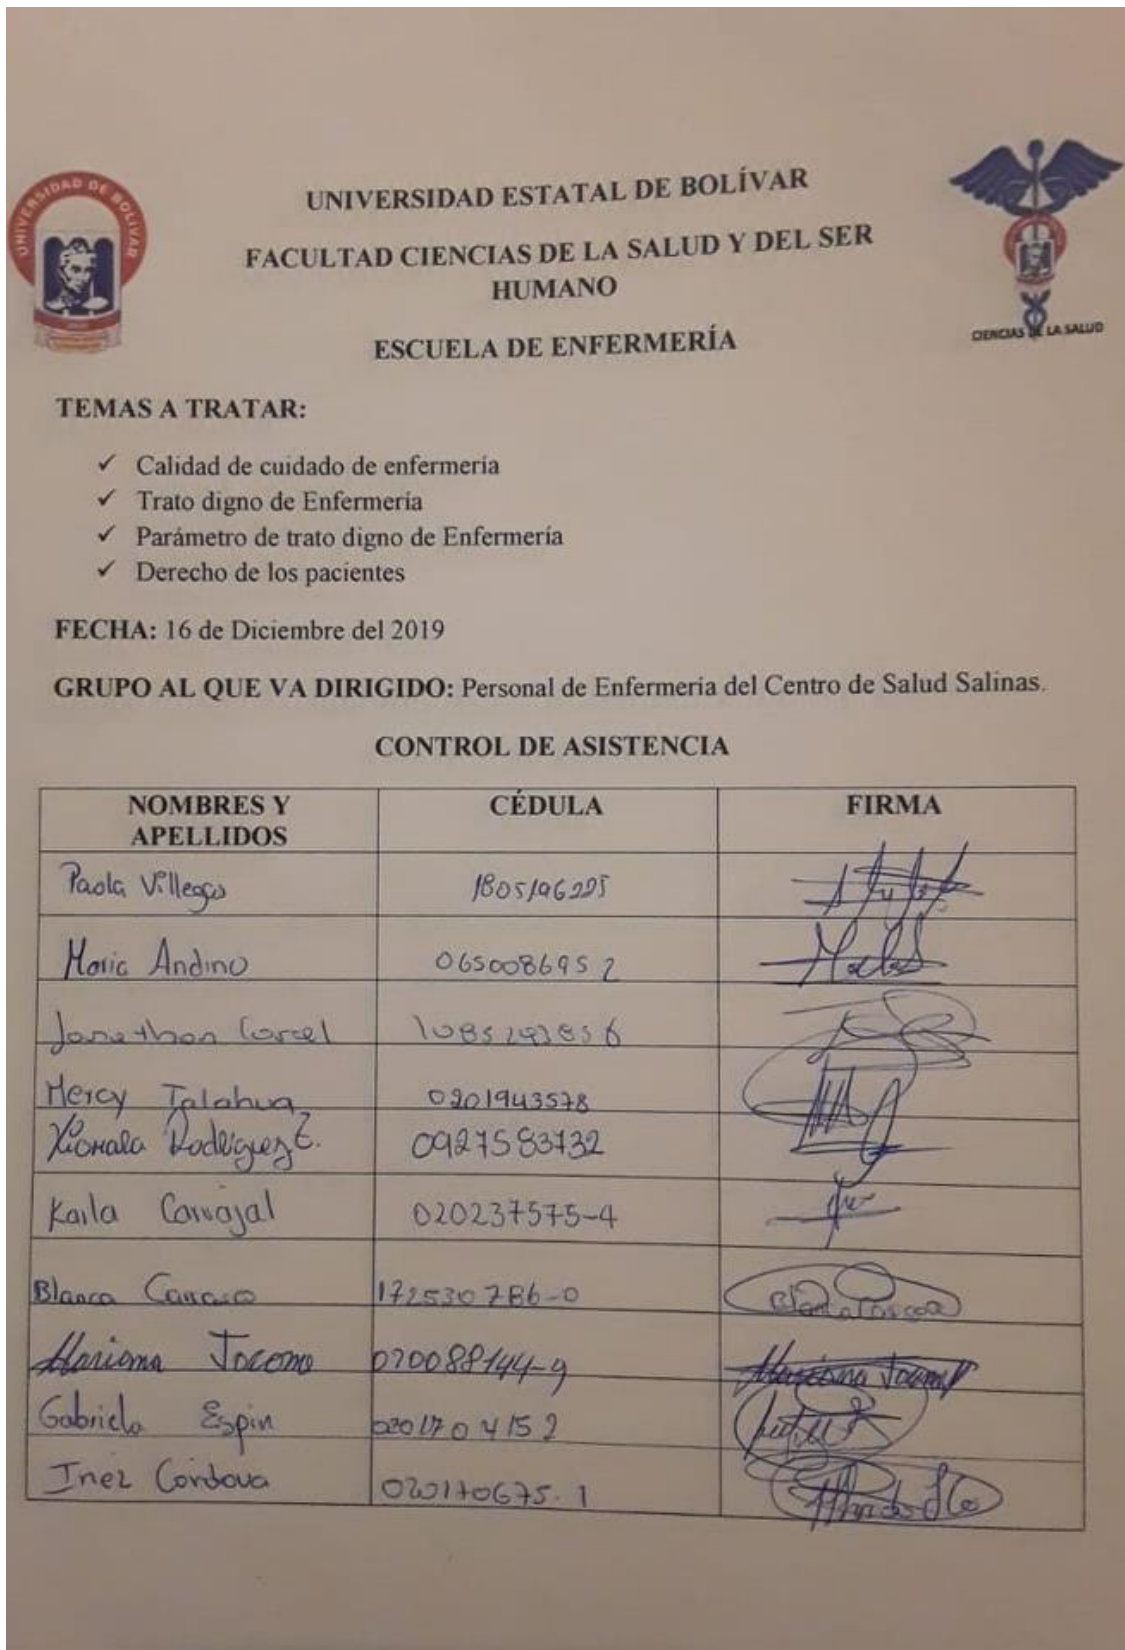 UNIVERSIDAD DE BOLIVAR
UNIVERSIDAD ESTATAL DE BOLÍVAR
FACULTAD CIENCIAS DE LA SALUD Y DEL SER
HUMANO
ESCUELA DE ENFERMERÍA
CIENCIAS DE LA SALUD
TEMAS A TRATAR:
✓ Calidad de cuidado de enfermería
✓ Trato digno de Enfermería
✓ Parámetro de trato digno de Enfermería
✓ Derecho de los pacientes
FECHA: 16 de Diciembre del 2019
GRUPO AL QUE VA DIRIGIDO: Personal de Enfermería del Centro de Salud Salinas.
CONTROL DE ASISTENCIA
NOMBRES Y APELLIDOS CÉDULA FIRMA
Paola Villegas
Maria Andino 065008695 2
Jonathan
Mercy Talahua 0201943578
Rodriguez E. 0927583732
Karla Carvajal 020237575-4
Blanca Carrasco 172530786-0
Mariana Jocome 020088144-9
Gabriela Espin 020170 415 2
Inez Cordova 020170675-1